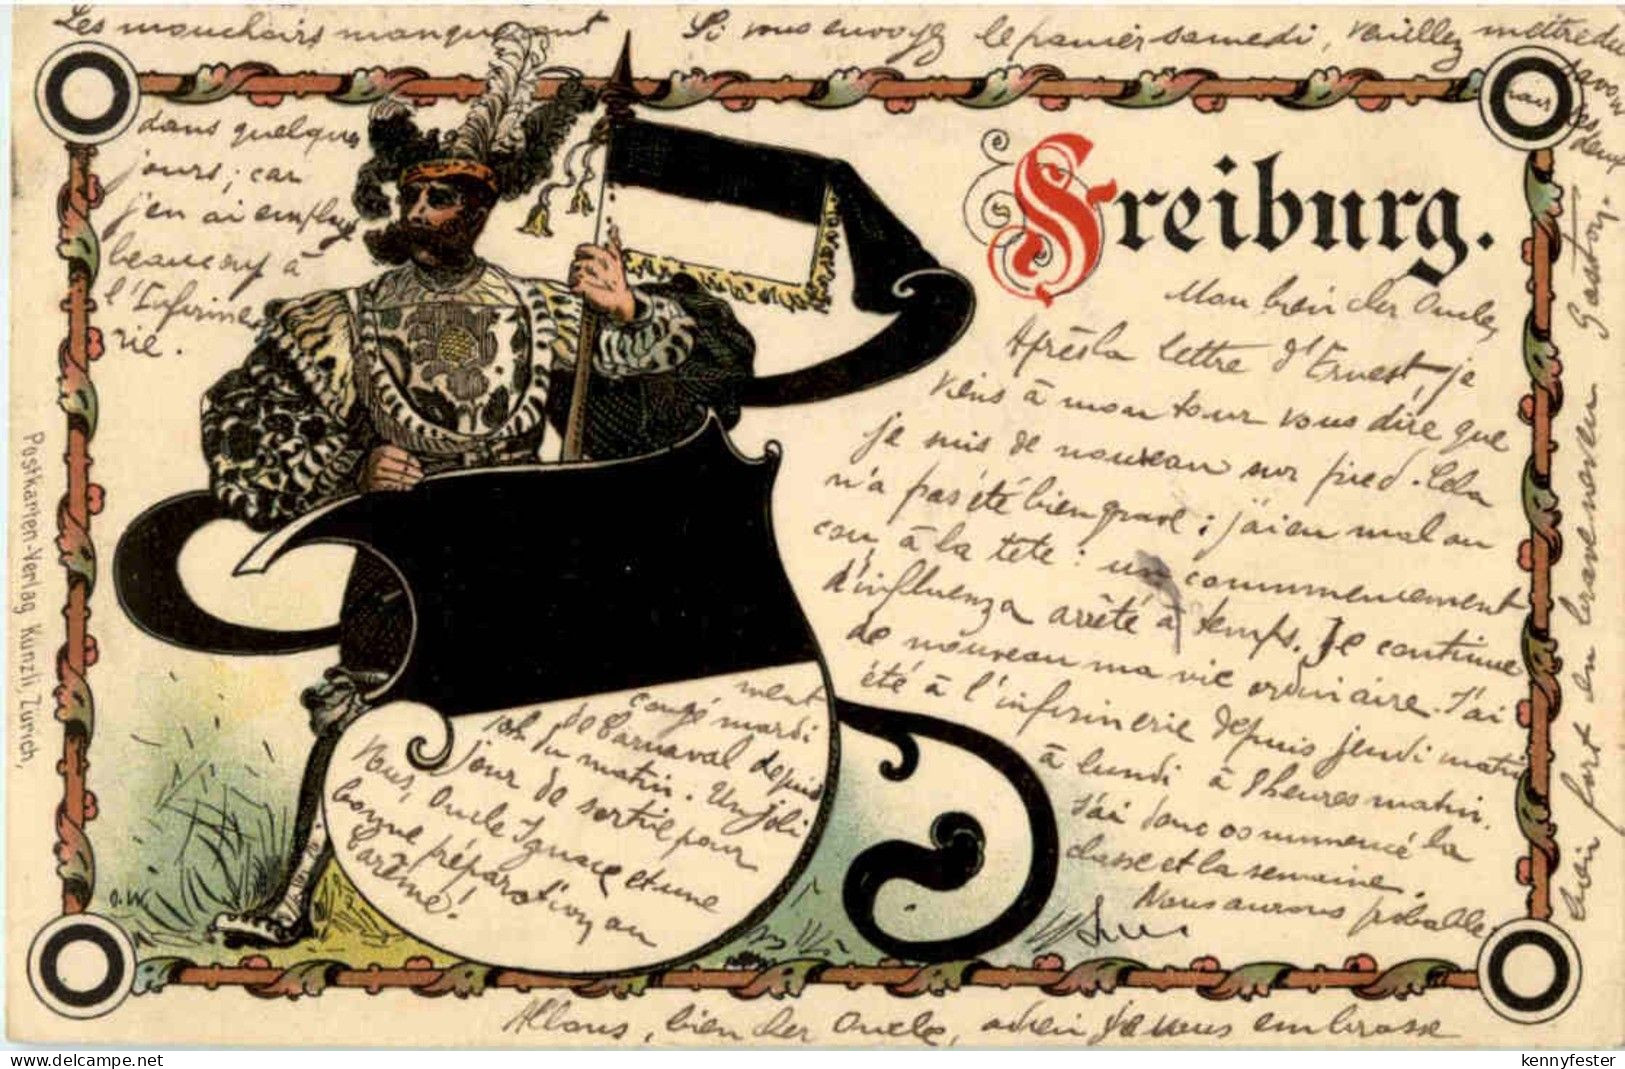 Freiburg.
Mon bien cher Oncle,
Après la lettre d'Ernest, je
viens à mon tour vous dire que
je suis de nouveau sur pied. Cela
n'a pas été bien grave ; j'ai eu mal au
cou à la tête : un commencement
d'influenza arrêté à temps. Je continue
de nouveau ma vie ordinaire. J'ai
été à l'infirmerie depuis jeudi matin
à lundi à 8 heures matin.
J'ai donc commencé la
classe et la semaine.
Nous aurons probable-
ment
congé mardi
de Carnaval depuis
10h du matin. Un joli
jour de sortie pour
Nous, Oncle Ignace et une
bonne préparation au
Carême!
Allons, bien cher Oncle, adieu je vous embrasse
bien fort en brave neveu Gaston.
Si vous envoyez le panier samedi, veuillez mettre du
savon
Les mouchoirs manqueront
dans quelques
jours ; car
j'en ai employé
beaucoup à
l'Infirme-
rie.
O.W.
Postkarten-Verlag Künzli, Zürich,
kennyfester